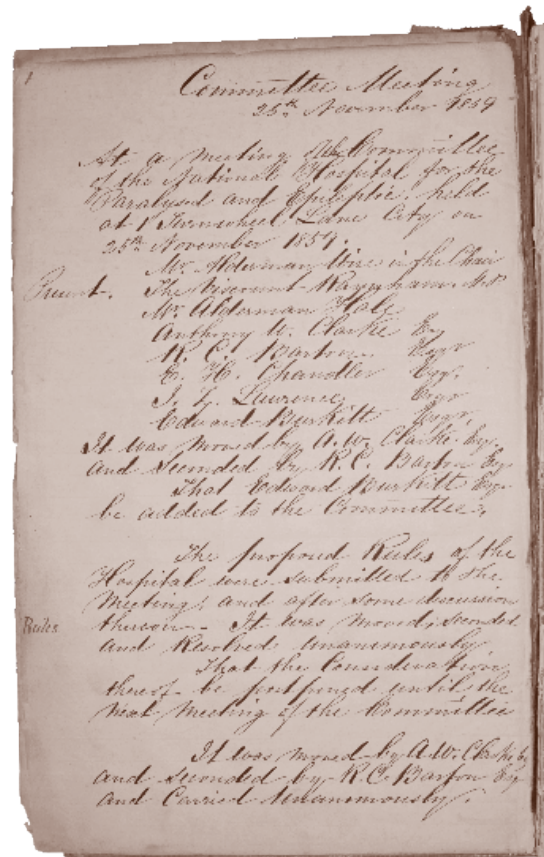 1
Committee Meeting
25th November 1859
At a meeting of the Committee
of the National Hospital for the
Paralysed and Epileptic. held
at 1 Turnwheel Lane City on
25th November 1859.
Mr. Alderman Wire in the Chair
Present. The Viscount Raynham. M.P.
Mr. Alderman Hale
Anthony W. Clarke Esq
R. C. Barton Esqr
E. H. Chandler Esq.
J. Z. Laurence Esqr
Edward Burkitt Esqr.
It was moved by A. W. Clarke. Esq.
and seconded by R. C. Barton Esq
That Edward Burkitt Esqr
be added to the Committee.
The proposed Rules of the
Hospital were submitted to the
Meeting; and after some discussion
Rules thereon - It was moved, seconded
and Resolved unanimously
That the Consideration
thereof be postponed until the
next Meeting of the Committee
It was moved by A. W. Clarke Esq
and seconded by R. C. Barton Esq
and Carried Unanimously.